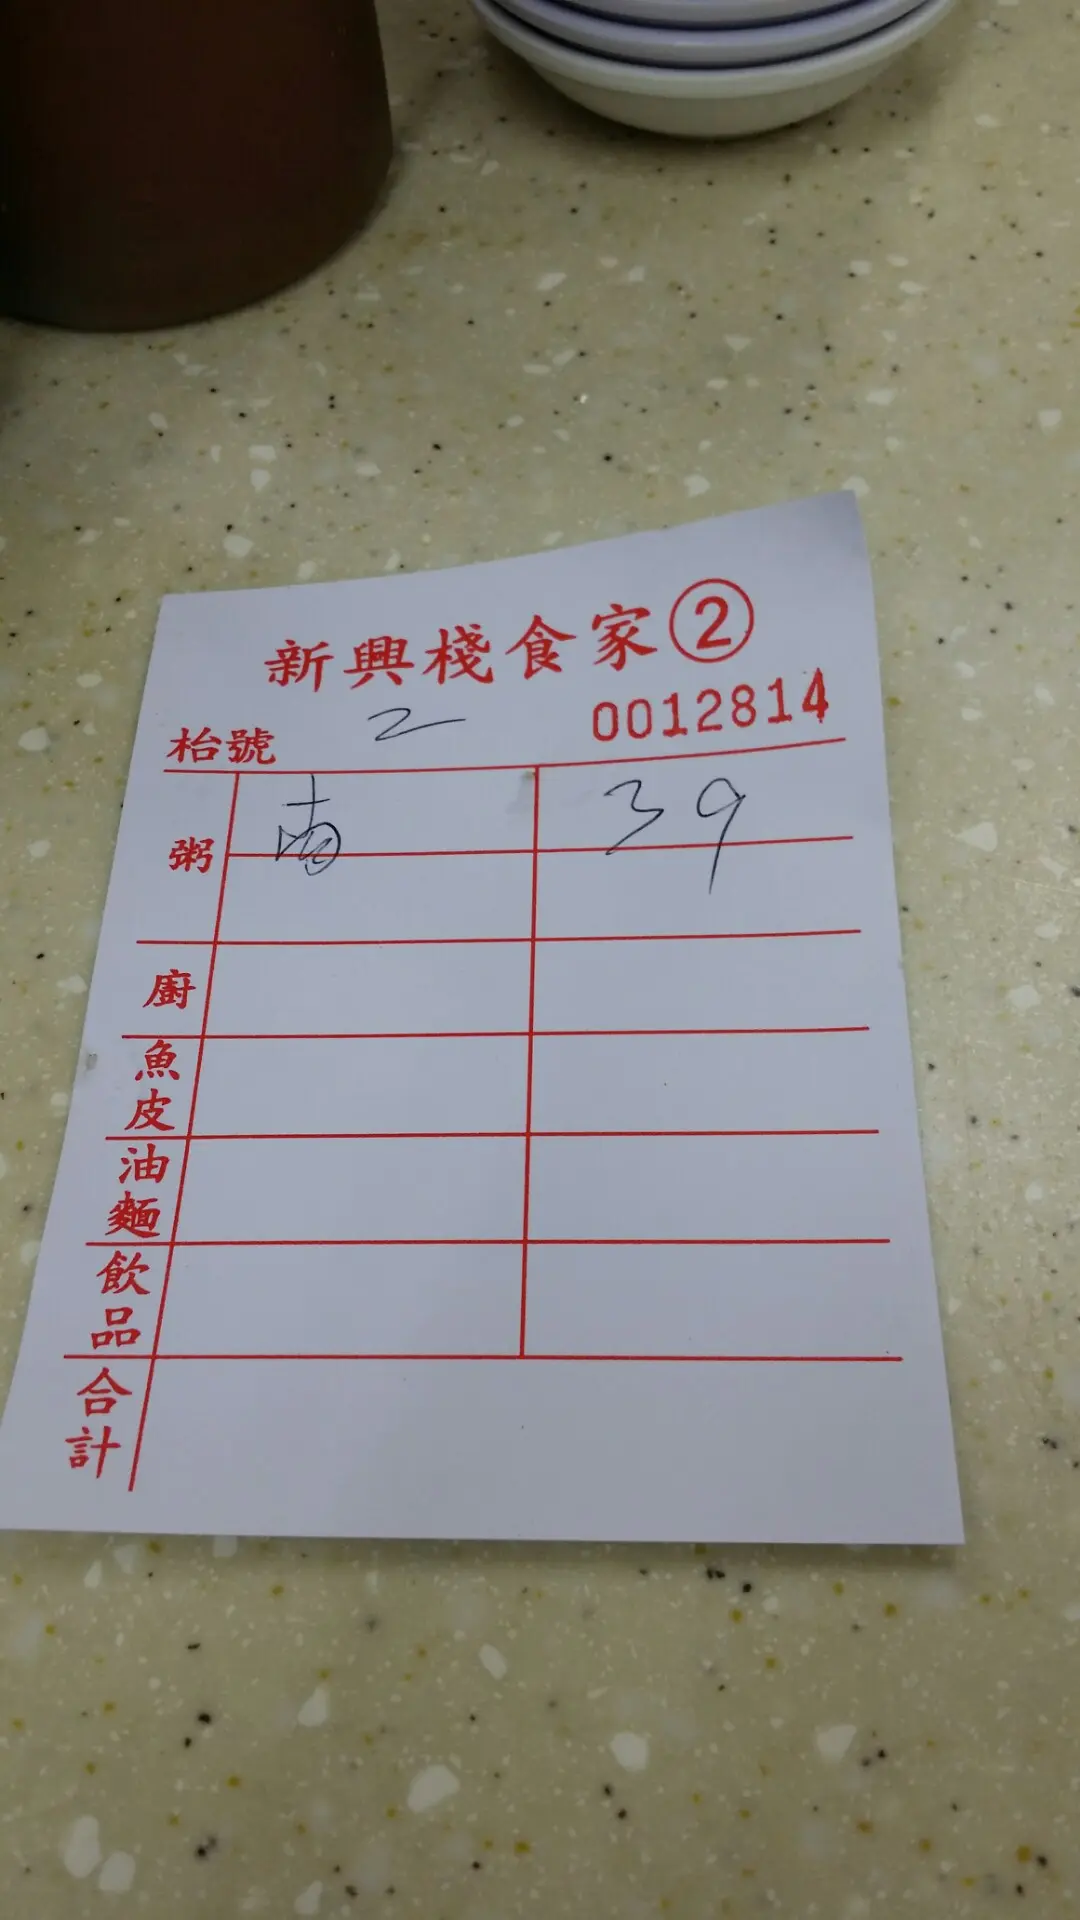 新興棧食家②
枱號 2 0012814
粥 南 39
廚
魚皮
油麵
飲品
合計